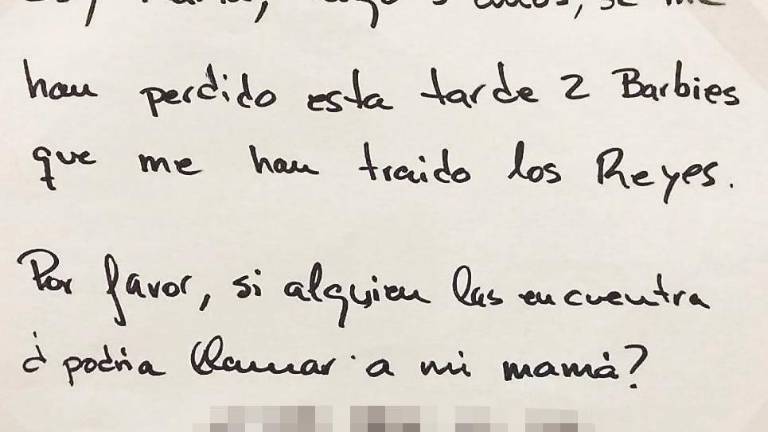 se me
han perdido esta tarde 2 Barbies
que me han traido los Reyes.
Por favor, si alguien las encuentra
¿podria llamar a mi mamá?